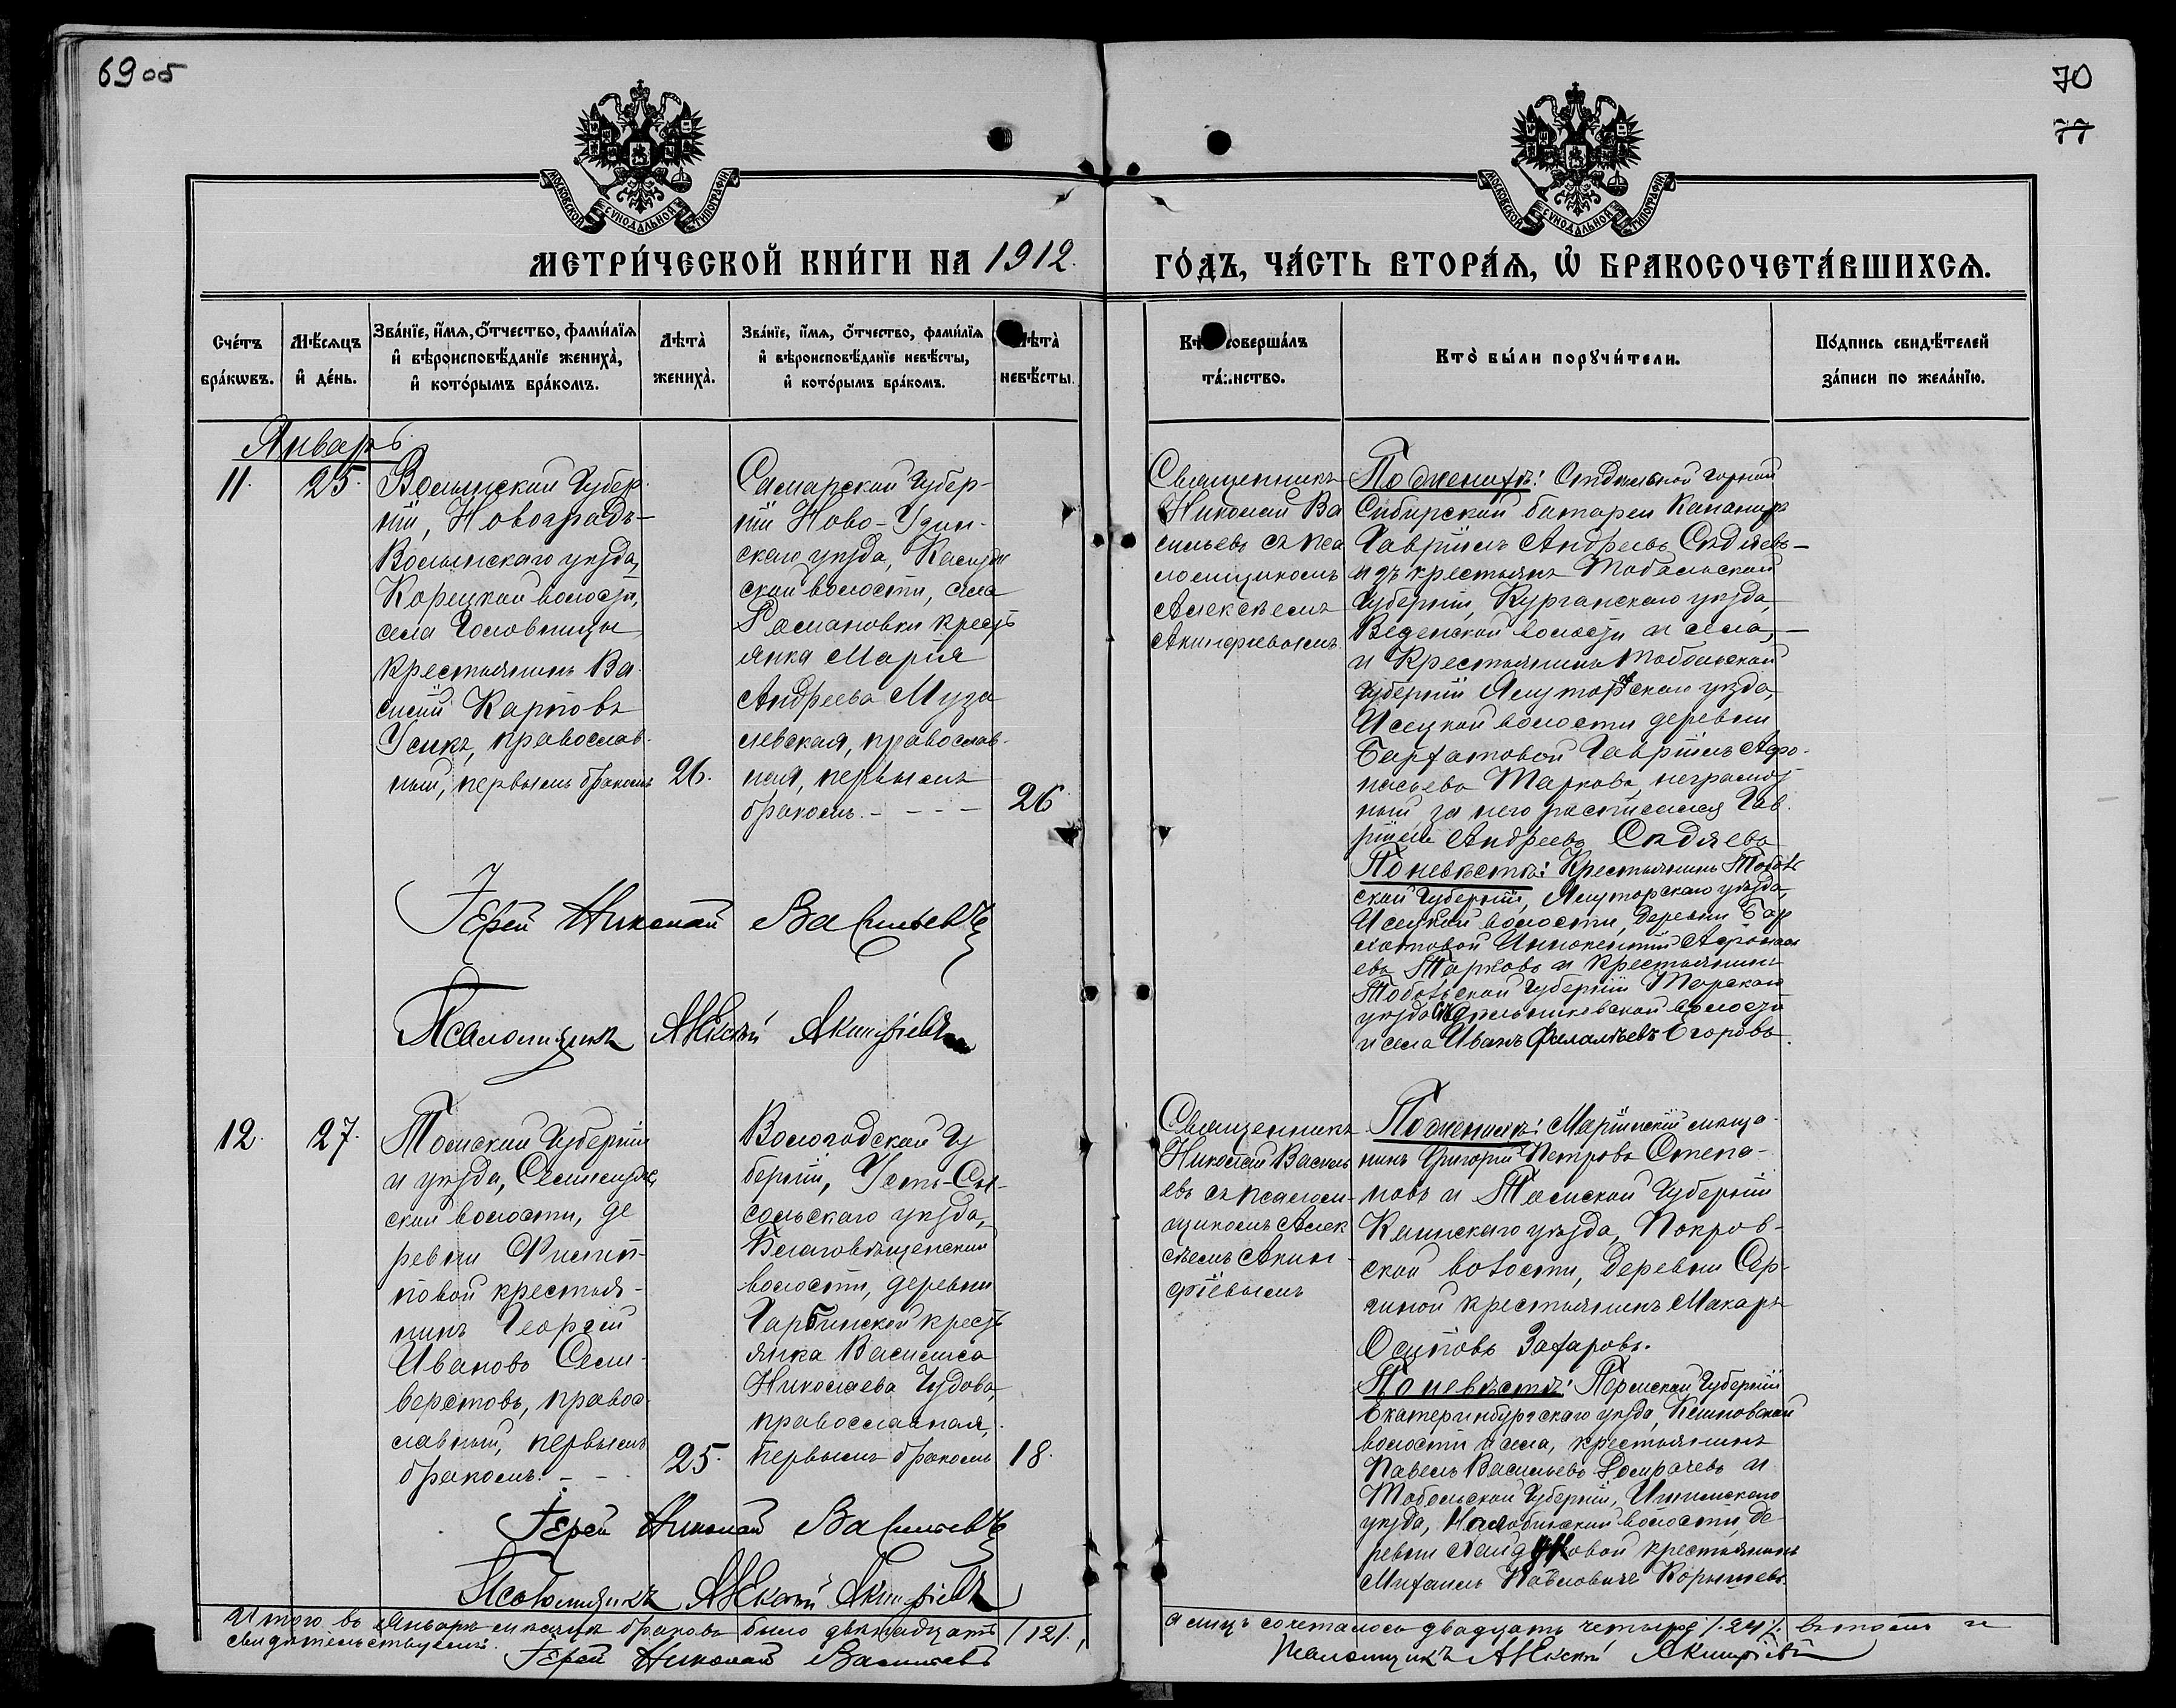 69 об
70
77
МОСКОВСКОЙ СѴНОДАЛЬНОЙ ТИПОГРАФІИ
МОСКОВСКОЙ СѴНОДАЛЬНОЙ ТИПОГРАФІИ
МЕТРИ́ЧЕСКОЙ КНИ́ГИ НА 1912.
ГО́ДЪ, ЧА́СТЬ ВТОРА́Ѧ, Ѡ҆ БРАКОСОЧЕТА́ВШИХСѦ.
Сче́тъ
бра́кѡвъ.
Мѣ́сѧцъ
и҆ де́нь.
Зва́нїе, и҆́мѧ, ѻ҆́тчество, фами́лїѧ
и҆ вѣроисповѣ́данїе жениха̀,
и҆ кото́рымъ бра́комъ.
Лѣта̀
жениха̀.
Зва́нїе, и҆́мѧ, ѻ҆́тчество, фами́лїѧ
и҆ вѣроисповѣ́данїе невѣ́сты,
и҆ кото́рымъ бра́комъ.
Лѣта̀
невѣ́сты.
Кто̀ соверша́лъ
та́инство.
Кто̀ бы́ли порꙋчи́тели.
По́дпись свидѣ́телей
за́писи по жела́нїю.
Январь
11.
25.
Волынской Губер-
ніи, Новоградъ-
Волынскаго уѣзда,
Корецкой волости,
села Головницы
крестьянинъ Ва-
силій Карповъ
Усикъ, православ-
ный, первымъ бракомъ
26.
Самарской Губер-
ніи Ново-Узен-
скаго уѣзда,
ской волости, села
Романовки кресть
янка Марія
Андреева Муза
левская, православ-
ная, первымъ
бракомъ. - - - -
26
Священникъ
Николай Ва
сильевъ съ пса
ломщикомъ
Алексѣемъ
Акинфіевымъ
По женихѣ: Отдѣльной горной
Сибирской батареи Канониръ
Гавріилъ Андреевъ Сѣдяевъ -
изъ крестьянъ Тобольской
Губерніи, Курганскаго уѣзда,
Веденской волости и села, -
и Крестьянинъ Тобольской
Губерніи Ялуторскаго уѣзда,
Исецкой волости деревни
Бархатовой Гавріилъ Афо-
насьевъ Тарковъ, неграмот
ный, за него росписался Гав-
ріилъ Андреевъ Сѣдяевъ
По невѣстѣ: Крестьянинъ Тоболь
ской Губерніи, Ялуторскаго уѣзда,
Исецкой волости, деревни Бар
хатовой Иннокентій Афонась
евъ Тарковъ и крестьянинъ
Тобольской Губерніи Тарскаго
уѣзда волости
и села Иванъ Филатьевъ Егоровъ.
Іерей Николай Васильевъ
Псаломщикъ Алексѣй Акинфіевъ
12.
27.
Томской Губерніи
и уѣзда, Семилуж
ской волости, де
ревни Филип-
повой крестья-
нинъ Георгій
Ивановъ Сели-
верстовъ, правос-
лавный, первымъ
бракомъ. - -
25.
Вологодской Гу
берніи, Усть-Сы-
сольскаго уѣзда,
Благовѣщенской
волости, деревни
кресть
янка Васисиса
Николаева Чудова,
православная,
первымъ бракомъ
18.
Священникъ
Николай Василь
евъ съ псалом-
щикомъ Алек
сѣемъ Акин-
фіевымъ
По женихѣ: Маріинскій мѣща-
нинъ Григорій Петровъ Степа-
новъ и Томской Губерніи
Каинскаго уѣзда, Покров-
ской волости, деревни Сер-
гиной крестьянинъ Макаръ
Осиповъ Захаровъ.
По невѣстѣ: Пермской Губерніи
Екатеринбургскаго уѣзда,
волости и села, крестьянинъ
Павелъ Васильевъ Домрачевъ и
Тобольской Губерніи, Ишимскаго
уѣзда, волости, де-
ревни крестьянинъ
Михаилъ Павловичъ Корышевъ.
Іерей Николай Васильевъ
Псаломщикъ Алексѣй Акинфіевъ
Итого въ Январѣ мѣсяцѣ браковъ было двѣнадцать /12/,
а лицъ сочеталось двадцать четыре /24/, въ томъ и
свидѣтельствуемъ.
Іерей Николай Васильевъ
Псаломщикъ Алексѣй Акинфіевъ